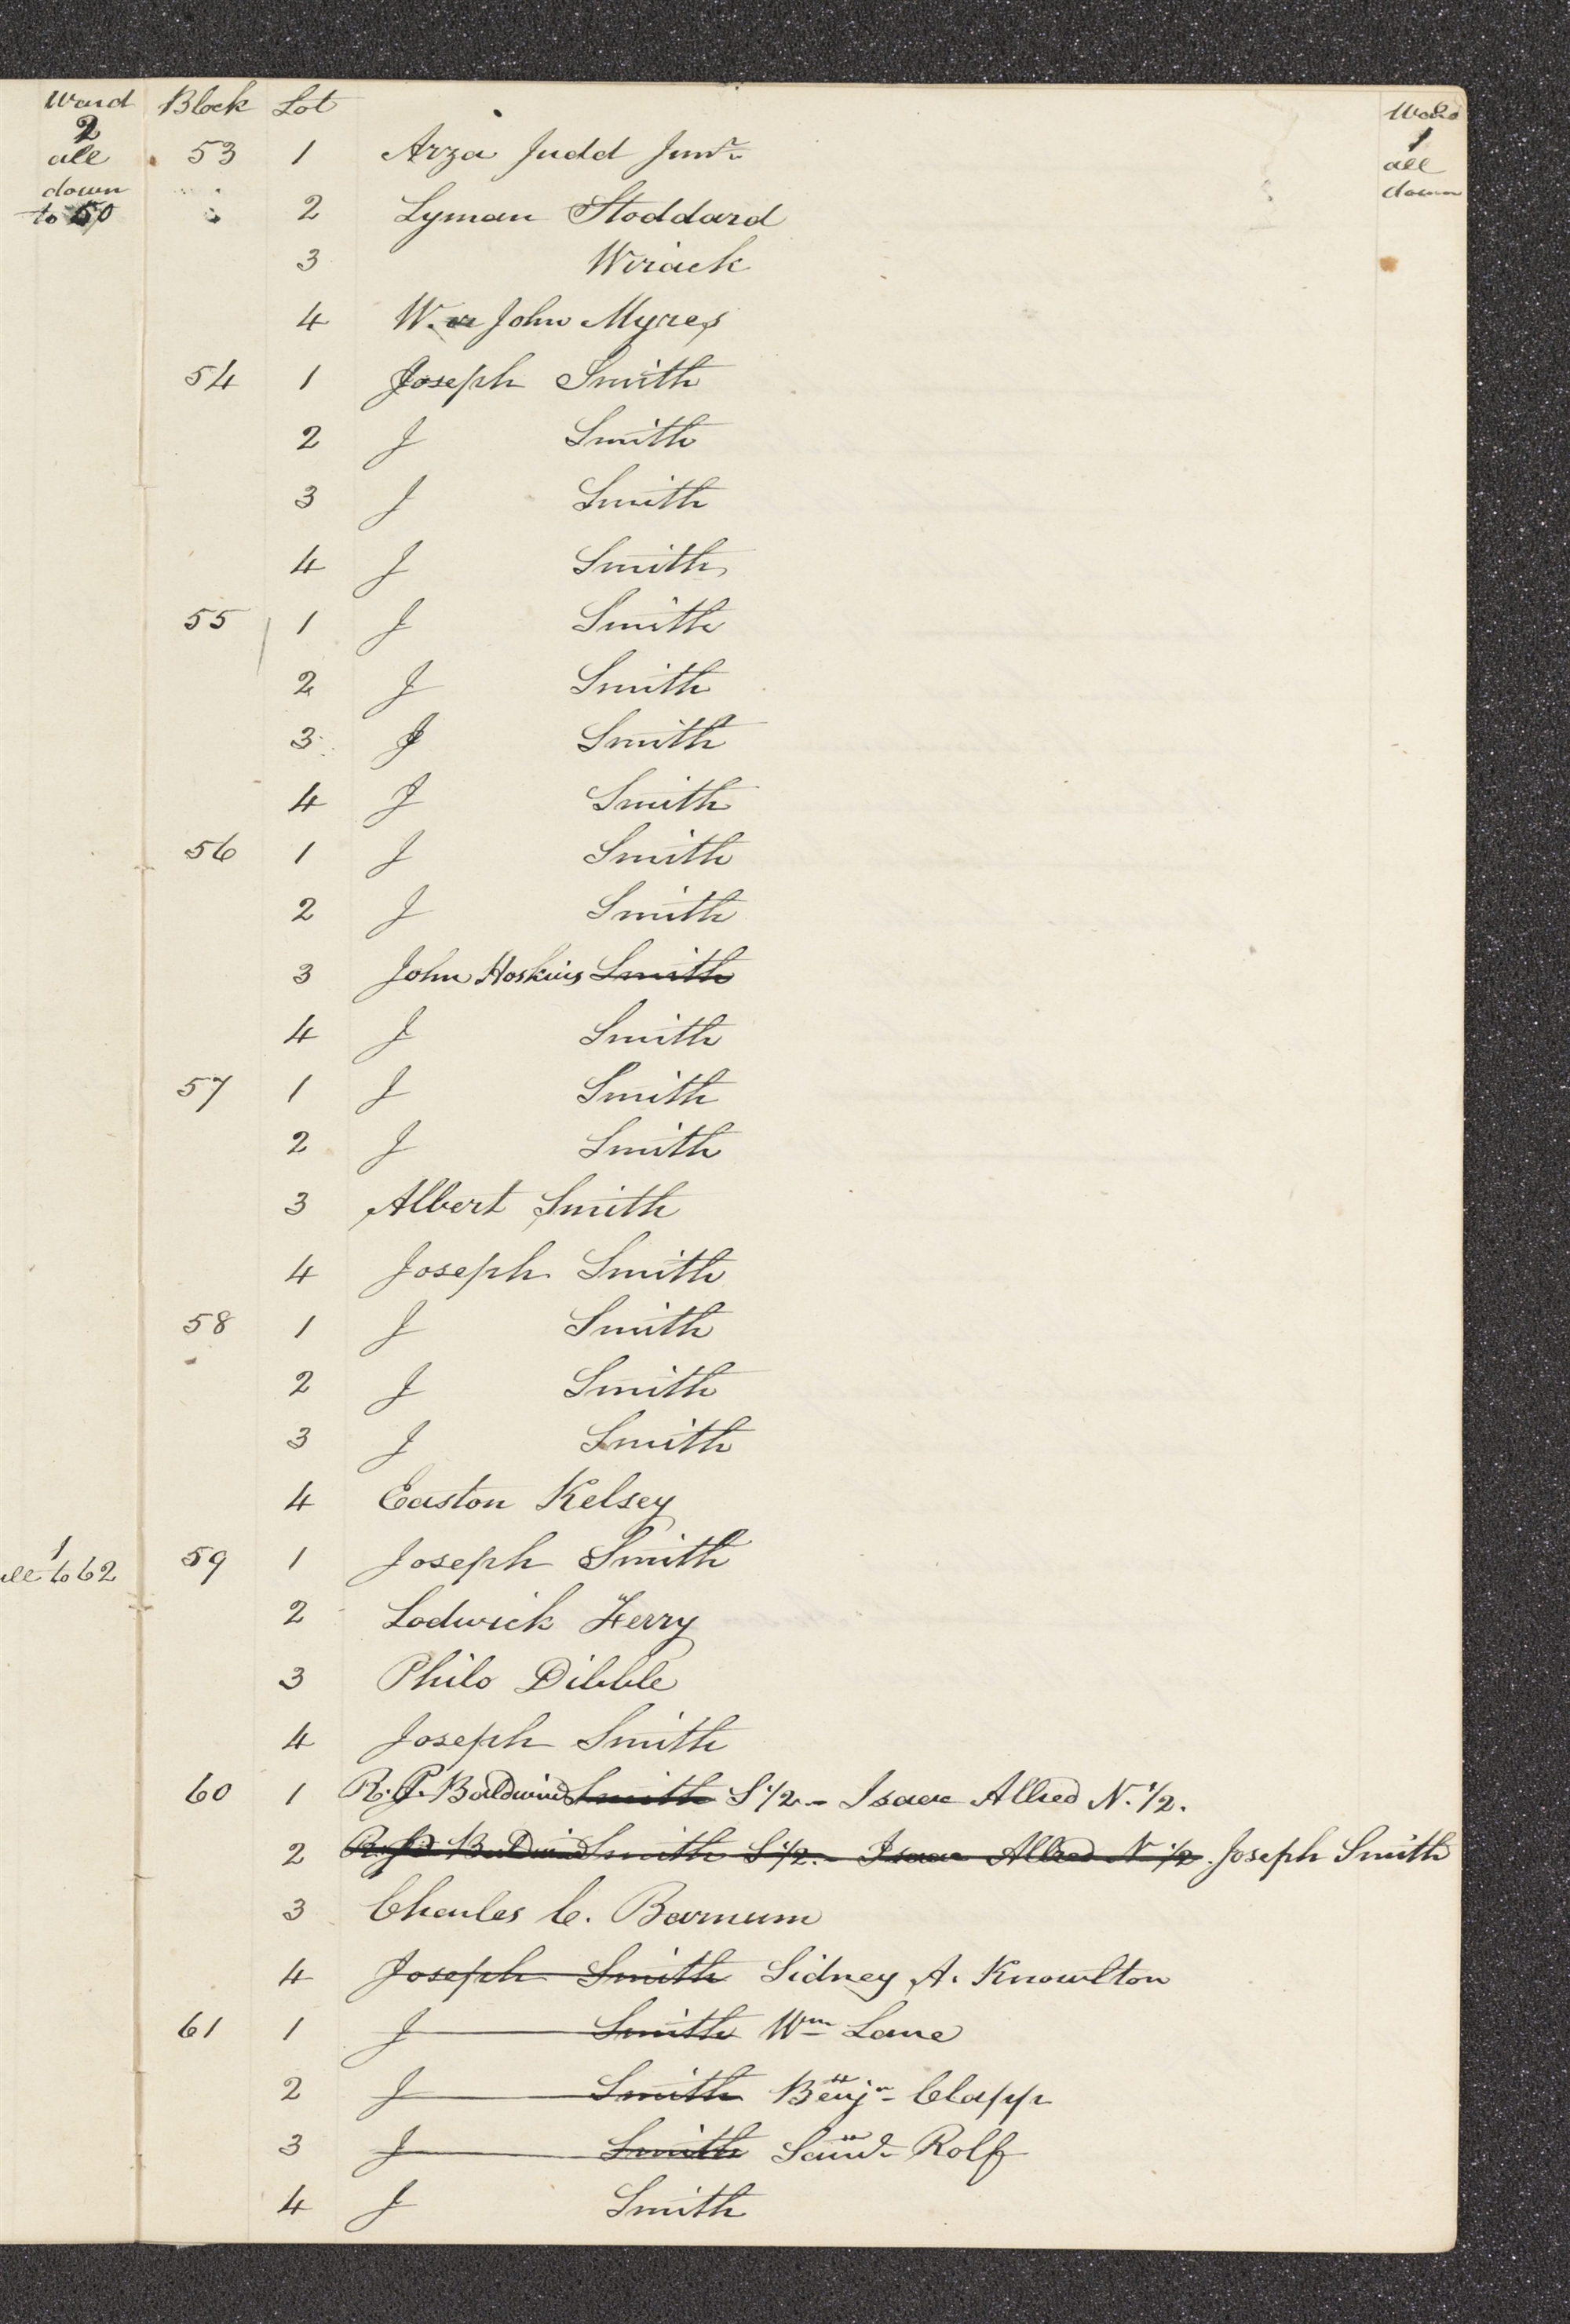 Ward Block Lot Ward
2 1
all 53 1 Arza Judd Junr. all
down down
to 50 2 Lyman Stoddard
3 Wirick
4 W. John Myres
54 1 Joseph Smith
2 J Smith
3 J Smith
4 J Smith
55 1 J Smith
2 J Smith
3 J Smith
4 J Smith
56 1 J Smith
2 J Smith
3 John Hoskins Smith
4 J Smith
57 1 J Smith
2 J Smith
3 Albert Smith
4 Joseph Smith
58 1 J Smith
2 J Smith
3 J Smith
4 Easton Kelsey
1
all to 62 59 1 Joseph Smith
2 Lodwick Ferry
3 Philo Dibble
4 Joseph Smith
60 1 R. P. Baldwin Smith S 1/2. - Isaac Allred N. 1/2.
2 R. P. Baldwin Smith S 1/2. - Isaac Allred N 1/2. Joseph Smith
3 Charles C. Barnum
4 Joseph Smith Sidney A. Knowlton
61 1 J Smith Wm Lane
2 J Smith Benjn Clapp
3 J Smith Saml Rolf
4 J Smith